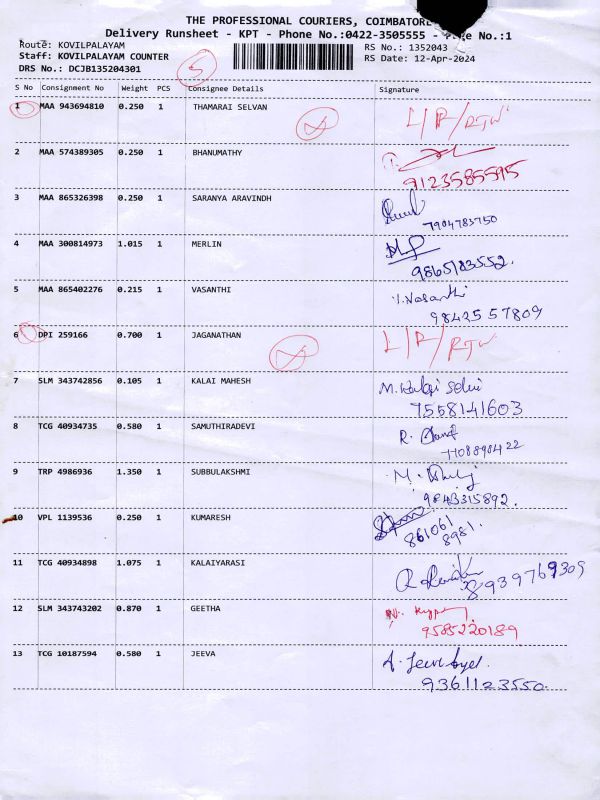 THE PROFESSIONAL COURIERS, COIMBATORE
Delivery Runsheet - KPT - Phone No.:0422-3505555 - Page No.:1
Route: KOVILPALAYAM
RS No.: 1352043
Staff: KOVILPALAYAM COUNTER
RS Date: 12-Apr-2024
DRS No.: DCJB135204301
5
S No Consignment No Weight PCS Consignee Details Signature
1 MAA 943694810 0.250 1 THAMARAI SELVAN L/R/RTW
2 MAA 574389305 0.250 1 BHANUMATHY
9123585595
3 MAA 865326398 0.250 1 SARANYA ARAVINDH
7904783750
4 MAA 300814973 1.015 1 MERLIN
9865183552.
5 MAA 865402276 0.215 1 VASANTHI Vasanthi
9842557809
6 DPI 259166 0.700 1 JAGANATHAN L/R/RTW
7 SLM 343742856 0.105 1 KALAI MAHESH M. Kalai Selvi
7558141603
8 TCG 40934735 0.580 1 SAMUTHIRADEVI R.
9 TRP 4986936 1.350 1 SUBBULAKSHMI M.
9843315892.
10 VPL 1139536 0.250 1 KUMARESH
861061
8981.
11 TCG 40934898 1.075 1 KALAIYARASI
8939769309
12 SLM 343743202 0.870 1 GEETHA
9585220189
13 TCG 10187594 0.580 1 JEEVA A.
9361123550.